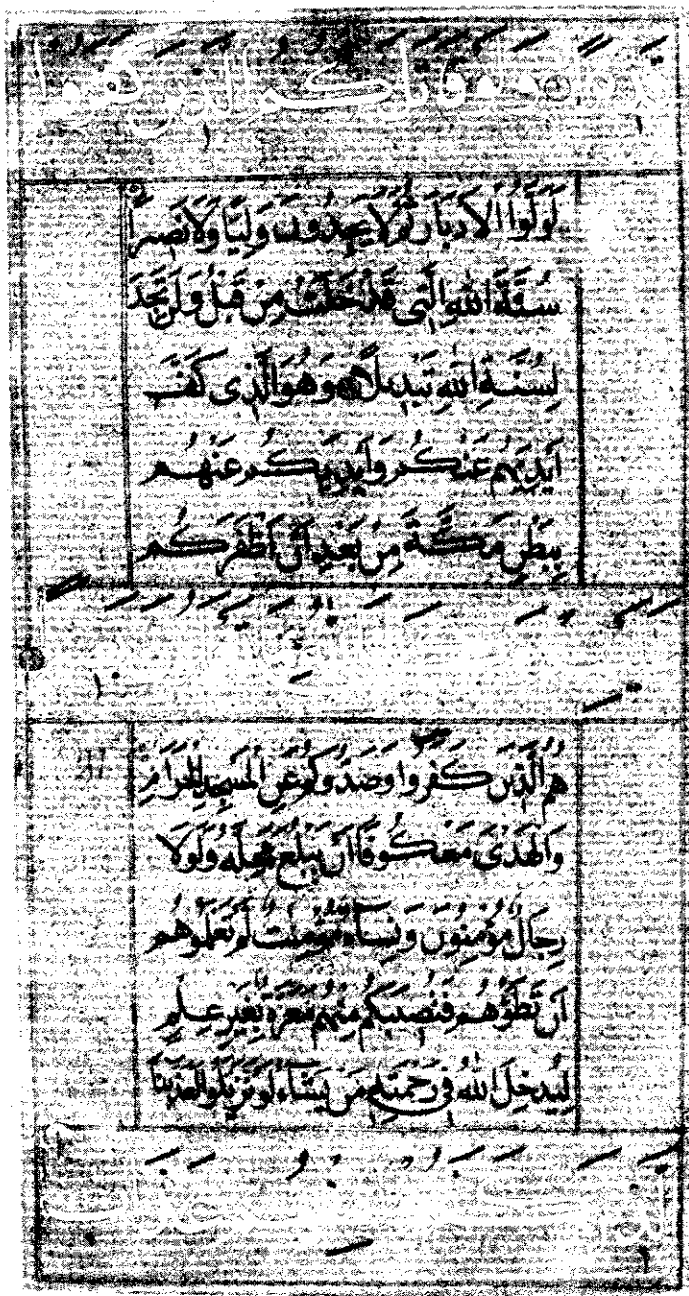 قَاتَلَكُمُ الَّذِينَ كَفَرُوا
لَوَلَّوُا الْأَدْبَارَ ثُمَّ لَا يَجِدُونَ وَلِيًّا وَلَا نَصِيرًا
سُنَّةَ اللَّهِ الَّتِي قَدْ خَلَتْ مِنْ قَبْلُ وَلَنْ تَجِدَ
لِسُنَّةِ اللَّهِ تَبْدِيلًا وَهُوَ الَّذِي كَفَّ
أَيْدِيَهُمْ عَنْكُمْ وَأَيْدِيَكُمْ عَنْهُمْ
بِبَطْنِ مَكَّةَ مِنْ بَعْدِ أَنْ أَظْفَرَكُمْ
هُمُ الَّذِينَ كَفَرُوا وَصَدُّوكُمْ عَنِ الْمَسْجِدِ الْحَرَامِ
وَالْهَدْيَ مَعْكُوفًا أَنْ يَبْلُغَ مَحِلَّهُ وَلَوْلَا
رِجَالٌ مُؤْمِنُونَ وَنِسَاءٌ مُؤْمِنَتٌ لَمْ تَعْلَمُوهُمْ
أَنْ تَطَؤُهُمْ فَتُصِيبَكُمْ مِنْهُمْ مَعَرَّةٌ بِغَيْرِ عِلْمٍ
لِيُدْخِلَ اللَّهُ فِي رَحْمَتِهِ مَنْ يَشَاءُ لَوْ تَزَيَّلُوا لَعَذَّبْنَا